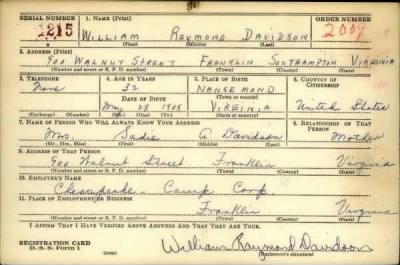 SERIAL NUMBER 1. NAME (Print) ORDER NUMBER
1215 WILLIAM RAYMOND DAVIDSON 2009
(First) (Middle) (Last)
2. ADDRESS (Print)
900 WALNUT STREET FRANKLIN SOUTHAMPTON VIRGINIA
(Number and street or R. F. D. number) (Town) (County) (State)
3. TELEPHONE 4. AGE IN YEARS 5. PLACE OF BIRTH 6. COUNTRY OF CITIZENSHIP
None 32 NANSEMOND
DATE OF BIRTH (Town or county)
May 28 1908 VIRGINIA United States
(Mo.) (Day) (Yr.) (State or country)
7. NAME OF PERSON WHO WILL ALWAYS KNOW YOUR ADDRESS 8. RELATIONSHIP OF THAT PERSON
Mrs. Sadie Davidson Mother
(Mr., Mrs., Miss) (First) (Middle) (Last)
9. ADDRESS OF THAT PERSON
900 Walnut Street Franklin Virginia
(Number and street or R. F. D. number) (Town) (County) (State)
10. EMPLOYER'S NAME
Chesapeake Camp Corp.
11. PLACE OF EMPLOYMENT OR BUSINESS
Franklin Virginia
(Number and street or R. F. D. number) (Town) (County) (State)
I AFFIRM THAT I HAVE VERIFIED ABOVE ANSWERS AND THAT THEY ARE TRUE.
REGISTRATION CARD
D. S. S. Form 1 (over) William Raymond Davidson
(Registrant's signature)